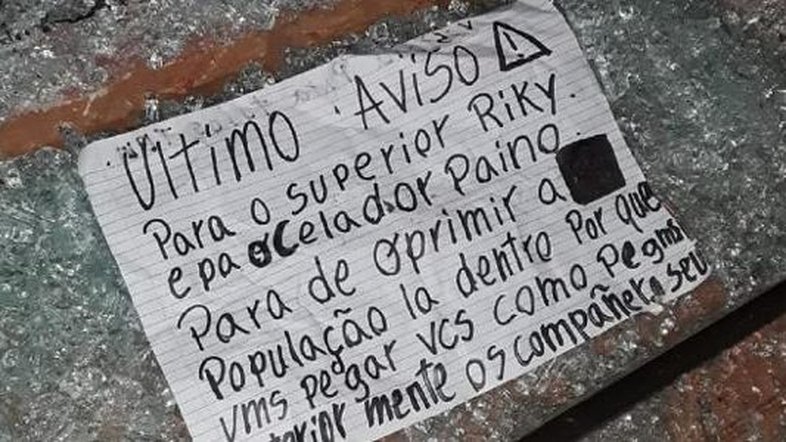 UltiMO AViSO
Para o superior Riky.
e pa o Celador Paino.
Para de oprimir a
População la dentro Por que
vms pegar vcs como pegms
terior mente os compañero seu